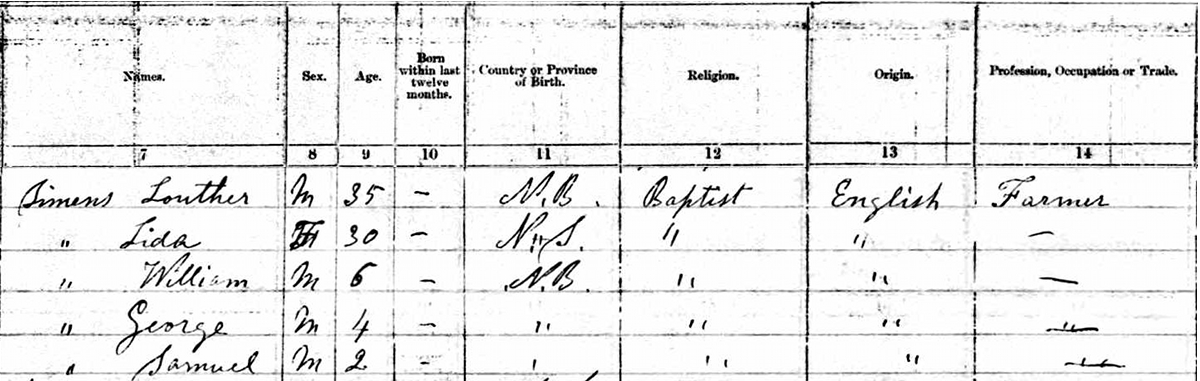 Names. Sex. Age. Born within last twelve months. Country or Province of Birth. Religion. Origin. Profession, Occupation or Trade.
7 8 9 10 11 12 13 14
Simens Louther M 35 – N.B. Baptist English Farmer
" Lida F 30 – N.S. " " –
" William M 6 – N.B. " " –
" George M 4 – " " " "
" Samuel M 2 - " " " "